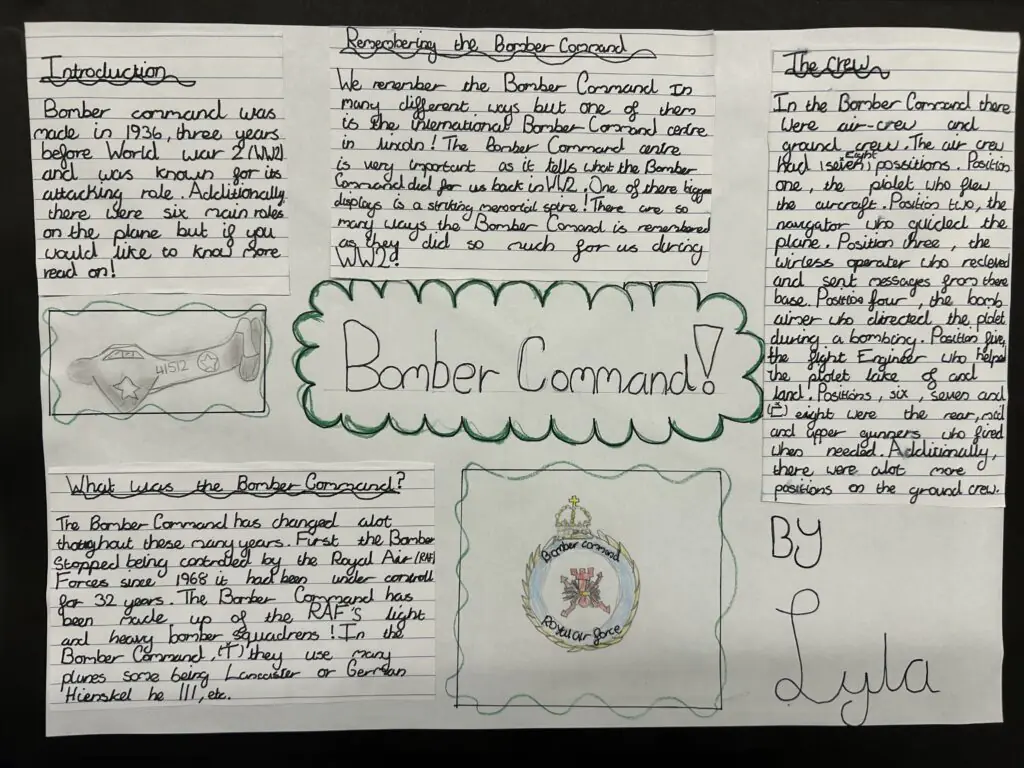 Introduction
Bomber command was
made in 1936, three years
before World war 2 (WW2)
and was known for its
attacking role. Additionally,
there were six main roles
on the plane but if you
would like to know more
read on!
Remembering the Bomber Command
We remember the Bomber Command In
many different ways but one of them
is the international Bomber Command centre
in lincoln! The Bomber Command centre
is very important as it tells what the Bomber
Command did for us back in WW2. One of there bigges
displays is a striking memorial spire! There are so
many ways the Bomber Comand is remembered
as they did so much for us during
WW2!
The crew
In the Bomber Command there
were air-crew and
ground crew. The air crew
had (seven) Eight possitions. Position
one, the pielet who flew
the aurcraft. Position two, the
navigator who guided the
plane. Position three, the
wirless operater who recieved
and sent messages from there
base. Position four, the bomb
aimer who directed the pielet
during a bombing. Position five,
the flight Engineer who helped
the pielet take of and
land. Positions, six, seven and
eight were the rear, mid
and upper gunners who fired
when needed. Additionally,
there were alot more
positions on the ground crew.
41512
Bomber Command!
What was the Bomber Command?
The Bomber Command has changed alot
thoughout these many years. First the Bomber
Stopped being controled by the Royal Air (RAF)
Forces since 1968 it had been under controll
for 32 years. The Bomber Command has
been made up of the RAF'S light
and heavy bomber squadrens! In the
Bomber Command, they use many
planes some being Lancaster or German
Hienskel he 111, etc.
Bomber command
Royal air force
BY
Lyla